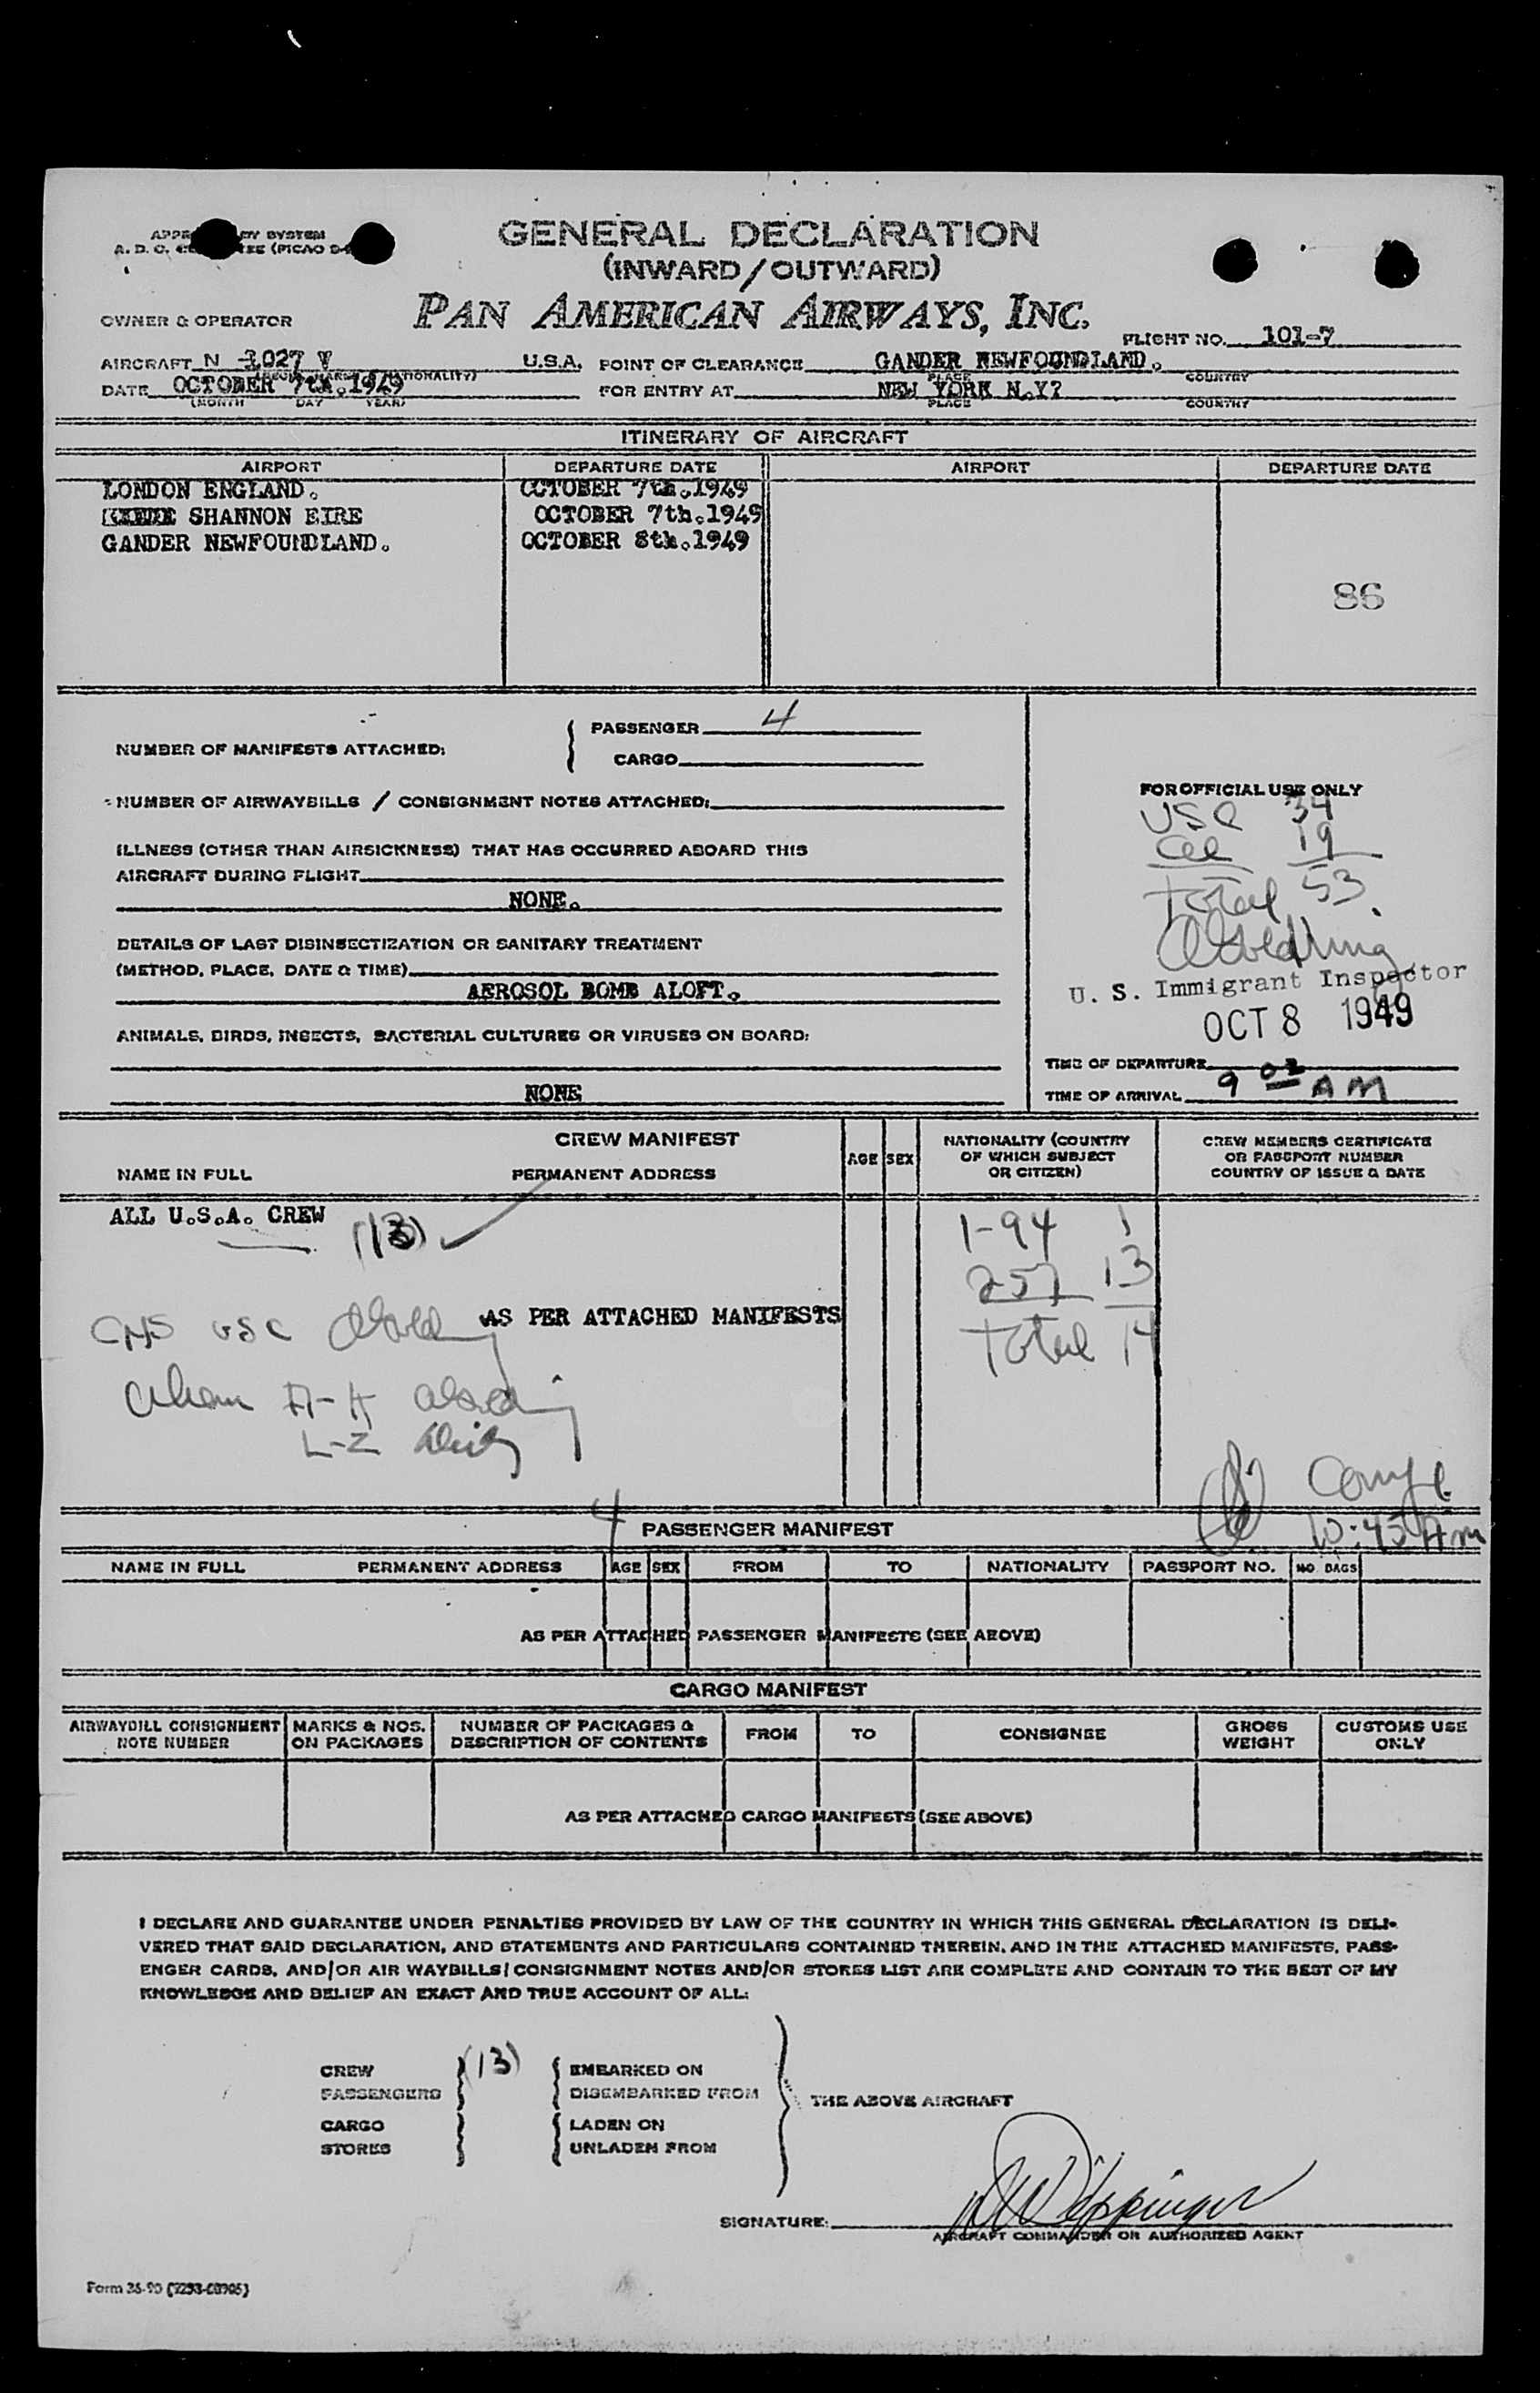 GENERAL DECLARATION
(INWARD/OUTWARD)
PAN AMERICAN AIRWAYS, INC.
OWNER & OPERATOR
FLIGHT NO. 101-7
AIRCRAFT N 1027 V U.S.A. POINT OF CLEARANCE GANDER NEWFOUNDLAND.
PLACE COUNTRY
DATE OCTOBER 7th.1949 FOR ENTRY AT NEW YORK N.Y?
(MONTH DAY YEAR) PLACE COUNTRY
ITINERARY OF AIRCRAFT
AIRPORT DEPARTURE DATE AIRPORT DEPARTURE DATE
LONDON ENGLAND. OCTOBER 7th.1949
SHANNON EIRE OCTOBER 7th.1949
GANDER NEWFOUNDLAND. OCTOBER 8th.1949
86
NUMBER OF MANIFESTS ATTACHED: PASSENGER 4
CARGO
NUMBER OF AIRWAYBILLS / CONSIGNMENT NOTES ATTACHED:
ILLNESS (OTHER THAN AIRSICKNESS) THAT HAS OCCURRED ABOARD THIS
AIRCRAFT DURING FLIGHT
NONE.
DETAILS OF LAST DISINSECTIZATION OR SANITARY TREATMENT
(METHOD, PLACE, DATE & TIME)
AEROSOL BOMB ALOFT.
ANIMALS, BIRDS, INSECTS, BACTERIAL CULTURES OR VIRUSES ON BOARD:
NONE
FOR OFFICIAL USE ONLY
USC 34
19
Total 53
U. S. Immigrant Inspector
OCT 8 1949
TIME OF DEPARTURE
TIME OF ARRIVAL 9 02 AM
CREW MANIFEST
NAME IN FULL PERMANENT ADDRESS AGE SEX NATIONALITY (COUNTRY OF WHICH SUBJECT OR CITIZEN) CREW MEMBERS CERTIFICATE OR PASSPORT NUMBER COUNTRY OF ISSUE & DATE
ALL U.S.A. CREW (13)
1-94 1
257 13
Total 14
AS PER ATTACHED MANIFESTS
usc
L-Z
10:45 Am
4
PASSENGER MANIFEST
NAME IN FULL PERMANENT ADDRESS AGE SEX FROM TO NATIONALITY PASSPORT NO. NO. BAGS
AS PER ATTACHED PASSENGER MANIFESTS (SEE ABOVE)
CARGO MANIFEST
AIRWAYBILL CONSIGNMENT NOTE NUMBER MARKS & NOS. ON PACKAGES NUMBER OF PACKAGES & DESCRIPTION OF CONTENTS FROM TO CONSIGNEE GROSS WEIGHT CUSTOMS USE ONLY
AS PER ATTACHED CARGO MANIFESTS (SEE ABOVE)
I DECLARE AND GUARANTEE UNDER PENALTIES PROVIDED BY LAW OF THE COUNTRY IN WHICH THIS GENERAL DECLARATION IS DELI-
VERED THAT SAID DECLARATION, AND STATEMENTS AND PARTICULARS CONTAINED THEREIN, AND IN THE ATTACHED MANIFESTS, PASS-
ENGER CARDS, AND/OR AIR WAYBILLS/CONSIGNMENT NOTES AND/OR STORES LIST ARE COMPLETE AND CONTAIN TO THE BEST OF MY
KNOWLEDGE AND BELIEF AN EXACT AND TRUE ACCOUNT OF ALL:
CREW (13) EMBARKED ON
PASSENGERS DISEMBARKED FROM
THE ABOVE AIRCRAFT
CARGO LADEN ON
STORES UNLADEN FROM
SIGNATURE:
AIRCRAFT COMMANDER OR AUTHORIZED AGENT